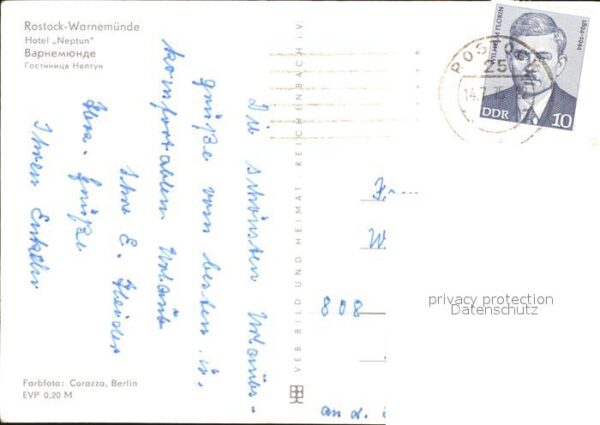 Rostock-Warnemünde
Hotel „Neptun"
Варнемюнде
Гостиница Нептун
Die schönsten Urlaubs-
grüße vom besten u.
komfortablen Urlaub
Ihre E.
Herz. Grüße
Ihren Enkeln
Farbfoto: Carazza, Berlin
EVP 0,20 M
VEB BILD UND HEIMAT · REICHENBACH i. V.
ROSTOCK
25
14.7.75
WILHELM FLORIN
1894-1944
DDR 10
808
an d.
privacy protection
Datenschutz